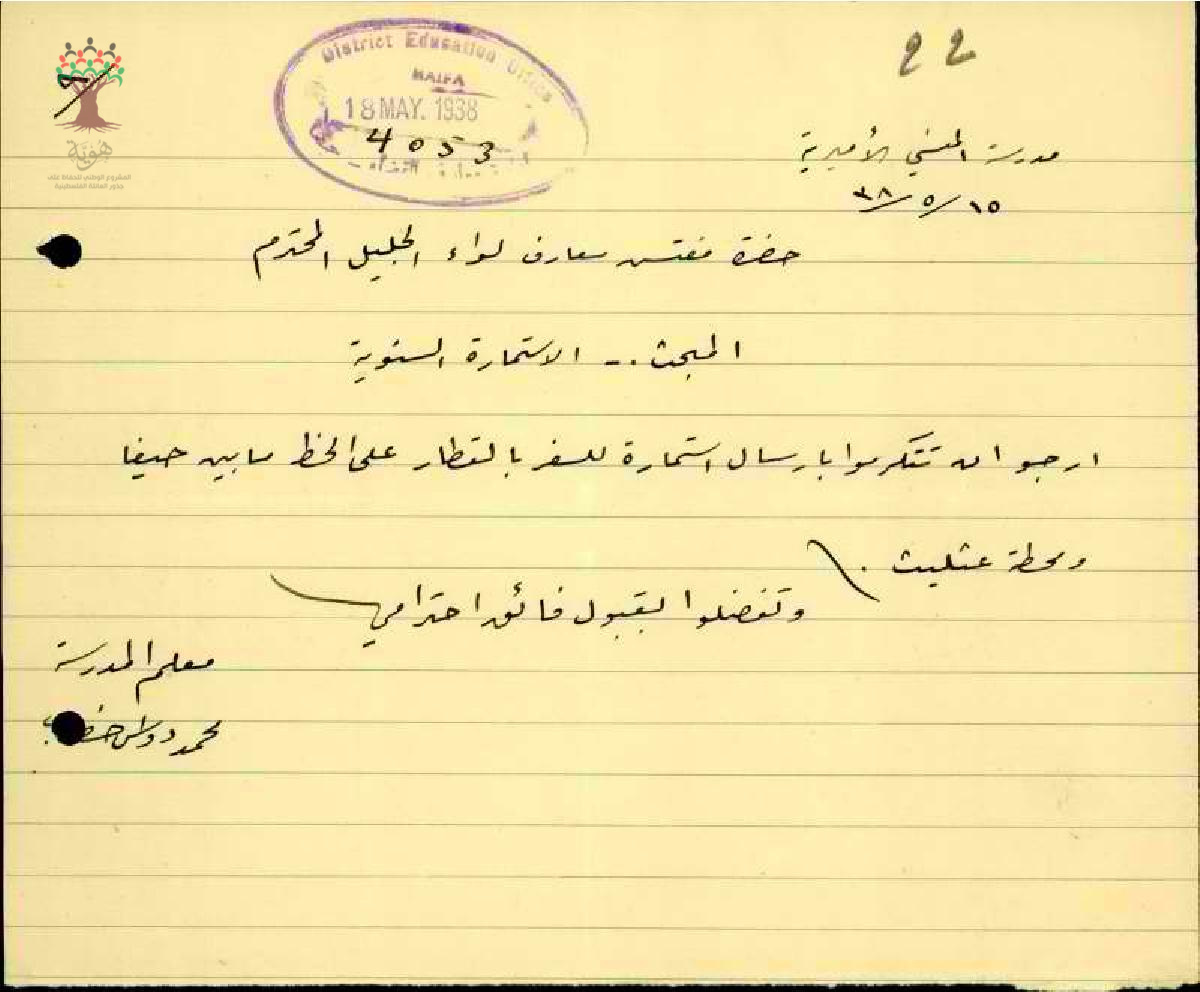 22
District Education Office
HAIFA
18 MAY. 1938
4053
هوية
المشروع الوطني للحفاظ على
جذور العائلة الفلسطينية
مدرسة المنسي الأميرية
١٥/٥/٣٨
حضرة مفتش معارف لواء الجليل المحترم
المبحث .- الاستمارة السنوية
ارجو ان تتكرموا بارسال استمارة للسفر بالقطار على الخط ما بين حيفا
ومحطة عتليت .
وتفضلوا بقبول فائق احترامي
معلم المدرسة
محمد